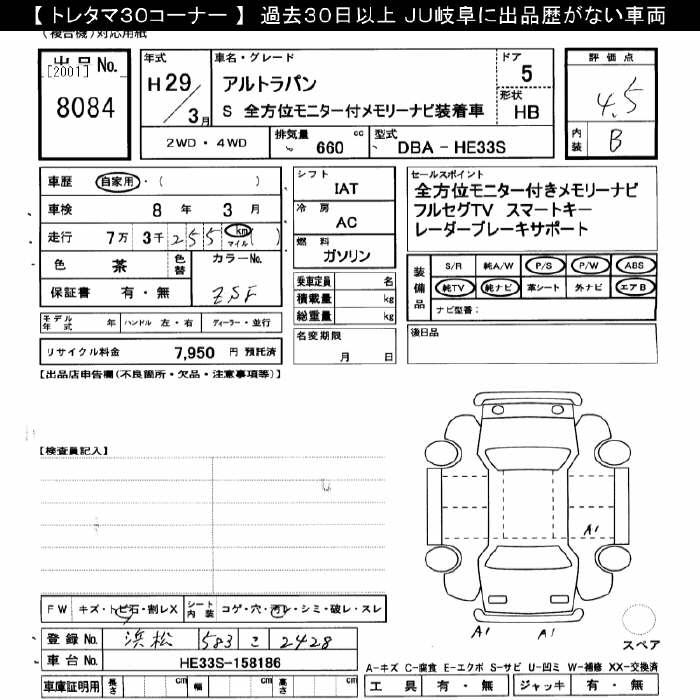 【 トレタマ30コーナー 】 過去30日以上 JU岐阜に出品歴がない車両
(複合機)対応用紙
出品No.
[2001]
8084
年式
H29/3月
車名・グレード
アルトラパン
S 全方位モニター付メモリーナビ装着車
ドア
5
形状
HB
2WD・4WD
排気量 660 cc
型式 DBA - HE33S
評価点
4.5
内装 B
車歴 自家用・( )
車検 8 年 3 月
走行 7万 3千 255 km マイル ( )
色 茶 色替
カラーNo.
ZSF
保証書 有・無
モデル年式 年 ハンドル 左・右 ディーラー・並行
リサイクル料金 7,950 円 預託済
シフト
IAT
冷房
AC
燃料
ガソリン
乗車定員 名
積載量 kg
総重量 kg
名変期限
月 日
セールスポイント
全方位モニター付きメモリーナビ
フルセグTV スマートキー
レーダーブレーキサポート
装備品
S/R 純A/W P/S P/W ABS
純TV 純ナビ 革シート 外ナビ エアB
ナビ型番:
後日品
【出品店申告欄(不良箇所・欠品・注意事項等)】
【検査員記入】
A1
A1
A1
スペア
FW キズ・トビ石・割レX シート内装 コゲ・穴・汚レ・シミ・破レ・スレ
登録No. 浜松 583 こ 2428
車台No. HE33S-158186
車庫証明用 長さ cm 幅 cm 高さ cm
A-キズ C-腐食 E-エクボ S-サビ U-凹ミ W-補修 XX-交換済
工具 有・無 ジャッキ 有・無